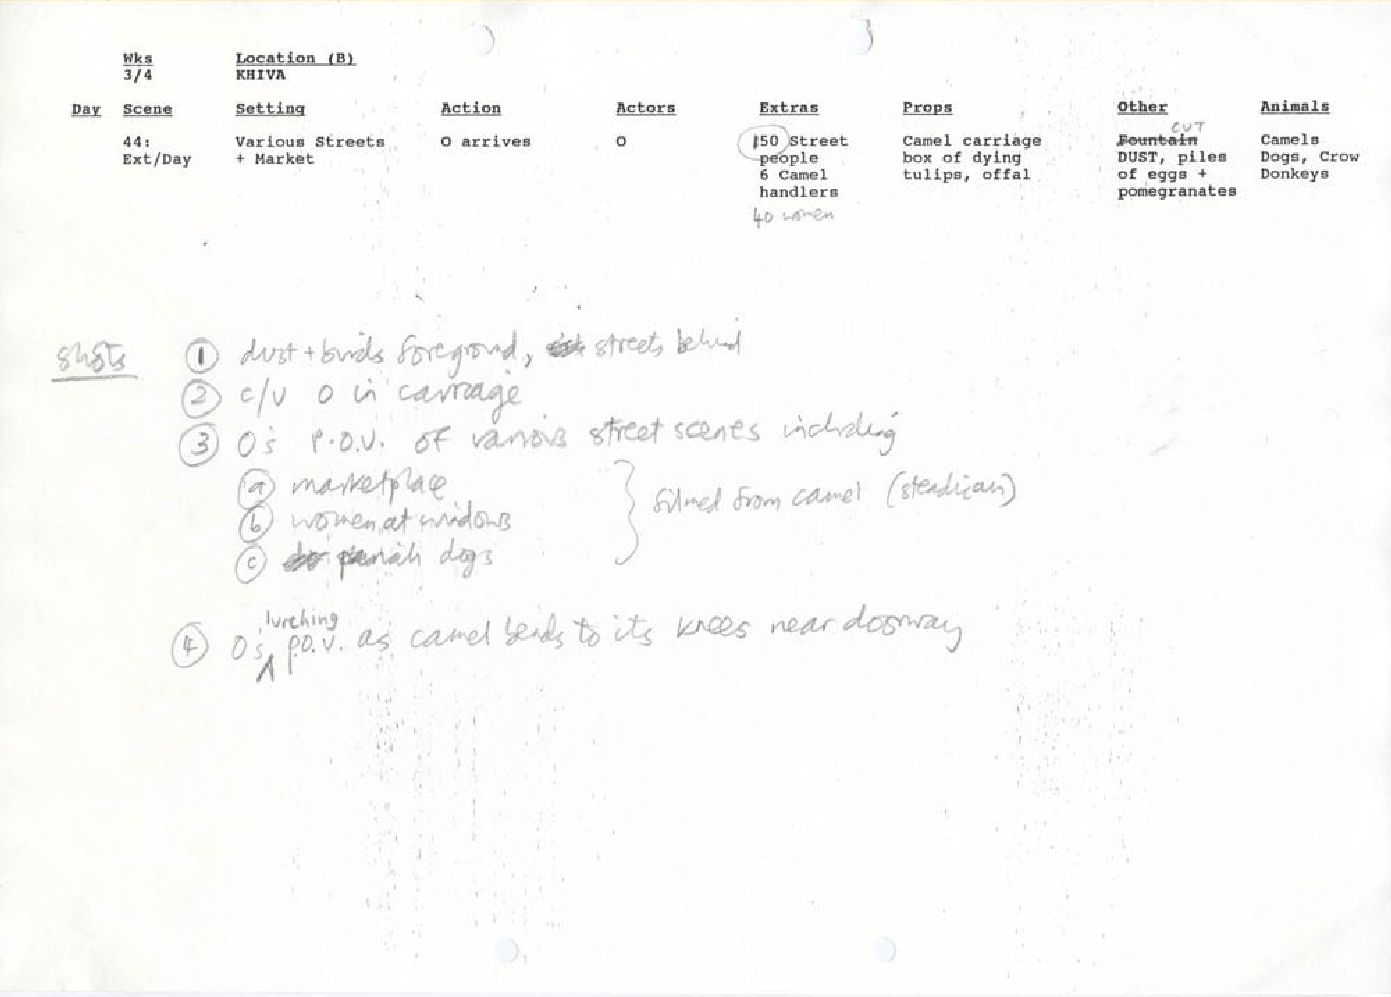 Wks Location (B)
3/4 KHIVA
Day Scene Setting Action Actors Extras Props Other Animals
CUT
44: Various Streets O arrives O 150 Street Camel carriage Fountain Camels
Ext/Day + Market people box of dying DUST, piles Dogs, Crow
6 Camel tulips, offal of eggs + Donkeys
handlers pomegranates
40 women
shots 1 dust + birds foreground, streets behind
2 c/u O in carriage
3 O's P.O.V. of various street scenes including
a marketplace
filmed from camel (steadicam)
b women at windows
c pariah dogs
lurching
4 O's p.o.v. as camel bends to its knees near doorway